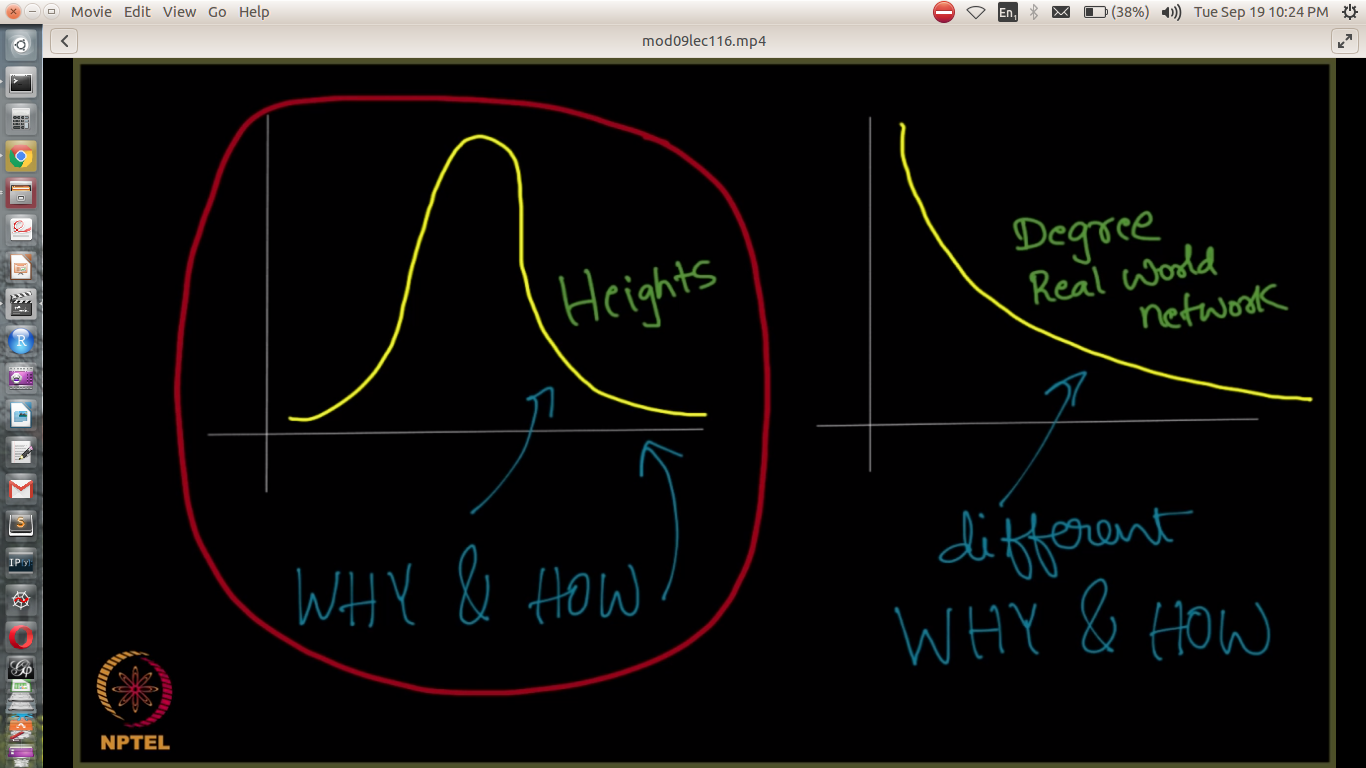 Movie Edit View Go Help
En1
(38%)
Tue Sep 19 10:24 PM
mod09lec116.mp4
Heights
WHY & HOW
Degree
Real World
network
different
WHY & HOW
NPTEL
R
S
IP[y]: